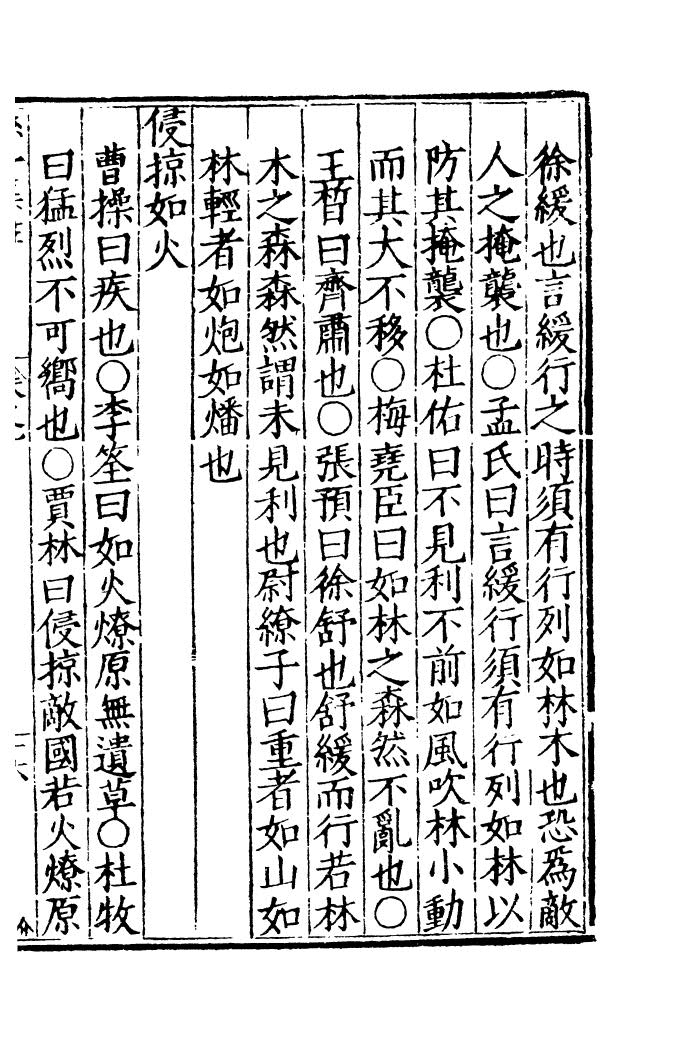 徐緩也言緩行之時須有行列如林木也恐爲敵
人之掩襲也○孟氏曰言緩行須有行列如林以
防其掩襲○杜佑曰不見利不前如風吹林小動
而其大不移○梅堯臣曰如林之森然不亂也○
王晳曰齊肅也○張預曰徐舒也舒緩而行若林
木之森森然謂未見利也尉繚子曰重者如山如
林輕者如炮如燔也
侵掠如火
曹操曰疾也○李筌曰如火燎原無遺草○杜牧
曰猛烈不可嚮也○賈林曰侵掠敵國若火燎原